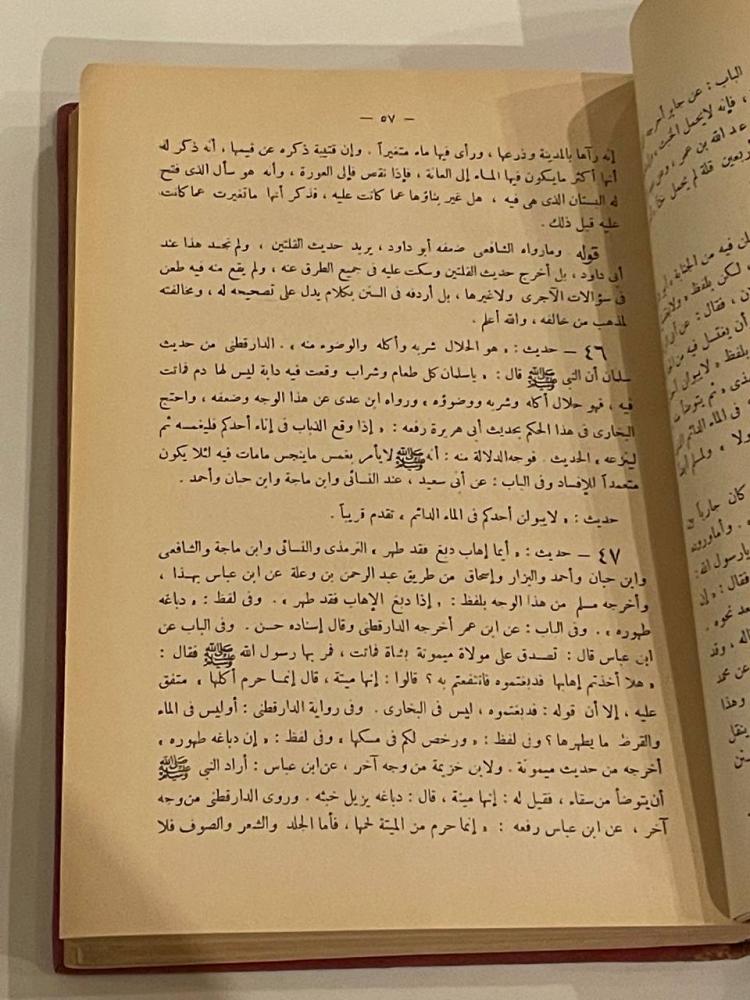 — ٥٧ —
إنه رآها بالمدينة وذرعها ، ورأى فيها ماء متغيراً . وإن قتيبة ذكره عن قيمها ، أنه ذكر له
أنها أكثر مايكون فيها الماء إلى العانة ، فإذا نقص فإلى العورة ، وأنه هو سأل الذى فتح
له البستان الذى هى فيه ، هل غير بناؤها عما كانت عليه ، فذكر أنها ماتغيرت عما كانت
عليه قبل ذلك .
قوله ومارواه الشافعى ضعفه أبو داود ، يريد حديث القلتين ، ولم نجد هذا عند
أبى داود ، بل أخرج حديث القلتين وسكت عليه فى جميع الطرق عنه ، ولم يقع منه فيه طعن
فى سؤالات الآجرى ولاغيرها ، بل أردفه فى السنن بكلام يدل على تصحيحه له ، ومخالفته
لمذهب من خالفه ، والله أعلم .
٤٦ — حديث : « هو الحلال شربه وأكله والوضوء منه » . الدارقطنى من حديث
سلمان أن النبى ﷺ قال : « ياسلمان كل طعام وشراب وقعت فيه دابة ليس لها دم فماتت
فيه ، فهو حلال أكله وشربه ووضوؤه » ورواه ابن عدى عن هذا الوجه وضعفه ، واحتج
البخارى فى هذا الحكم بحديث أبى هريرة رفعه : « إذا وقع الذباب فى إناء أحدكم فليغمسه ثم
لينزعه » الحديث . فوجه الدلالة منه : أنه ﷺ لايأمر بغمس ماينجس مامات فيه لئلا يكون
متعمداً للإفساد وفى الباب : عن أبى سعيد ، عند النسائى وابن ماجة وابن حبان وأحمد .
حديث : « لايبولن أحدكم فى الماء الدائم » تقدم قريباً .
٤٧ — حديث : « أيما إهاب دبغ فقد طهر » الترمذى والنسائى وابن ماجة والشافعى
وابن حبان وأحمد والبزار وإسحاق من طريق عبد الرحمن بن وعلة عن ابن عباس بهذا ،
وأخرجه مسلم من هذا الوجه بلفظ : « إذا دبغ الإهاب فقد طهر » . وفى لفظ : « دباغه
طهوره » . وفى الباب : عن ابن عمر أخرجه الدارقطنى وقال إسناده حسن . وفى الباب عن
ابن عباس قال : تصدق على مولاة ميمونة بشاة فماتت ، فمر بها رسول الله ﷺ فقال :
« هلا أخذتم إهابها فدبغتموه فانتفعتم به ؟ قالوا : إنها ميتة ، قال إنما حرم أكلها » متفق
عليه ، إلا أن قوله : فدبغتموه ، ليس فى البخارى . وفى رواية الدارقطنى : أوليس فى الماء
والقرظ ما يطهرها ؟ وفى لفظ : « ورخص لكم فى مسكها » وفى لفظ : « إن دباغه طهوره »
أخرجه من حديث ميمونة . ولابن خزيمة من وجه آخر ، عن ابن عباس : أراد النبى ﷺ
أن يتوضأ من سقاء ، فقيل له : إنها ميتة ، قال : دباغه يزيل خبثه . وروى الدارقطنى من وجه
آخر ، عن ابن عباس رفعه : « إنما حرم من الميتة لحمها ، فأما الجلد والشعر والصوف فلا